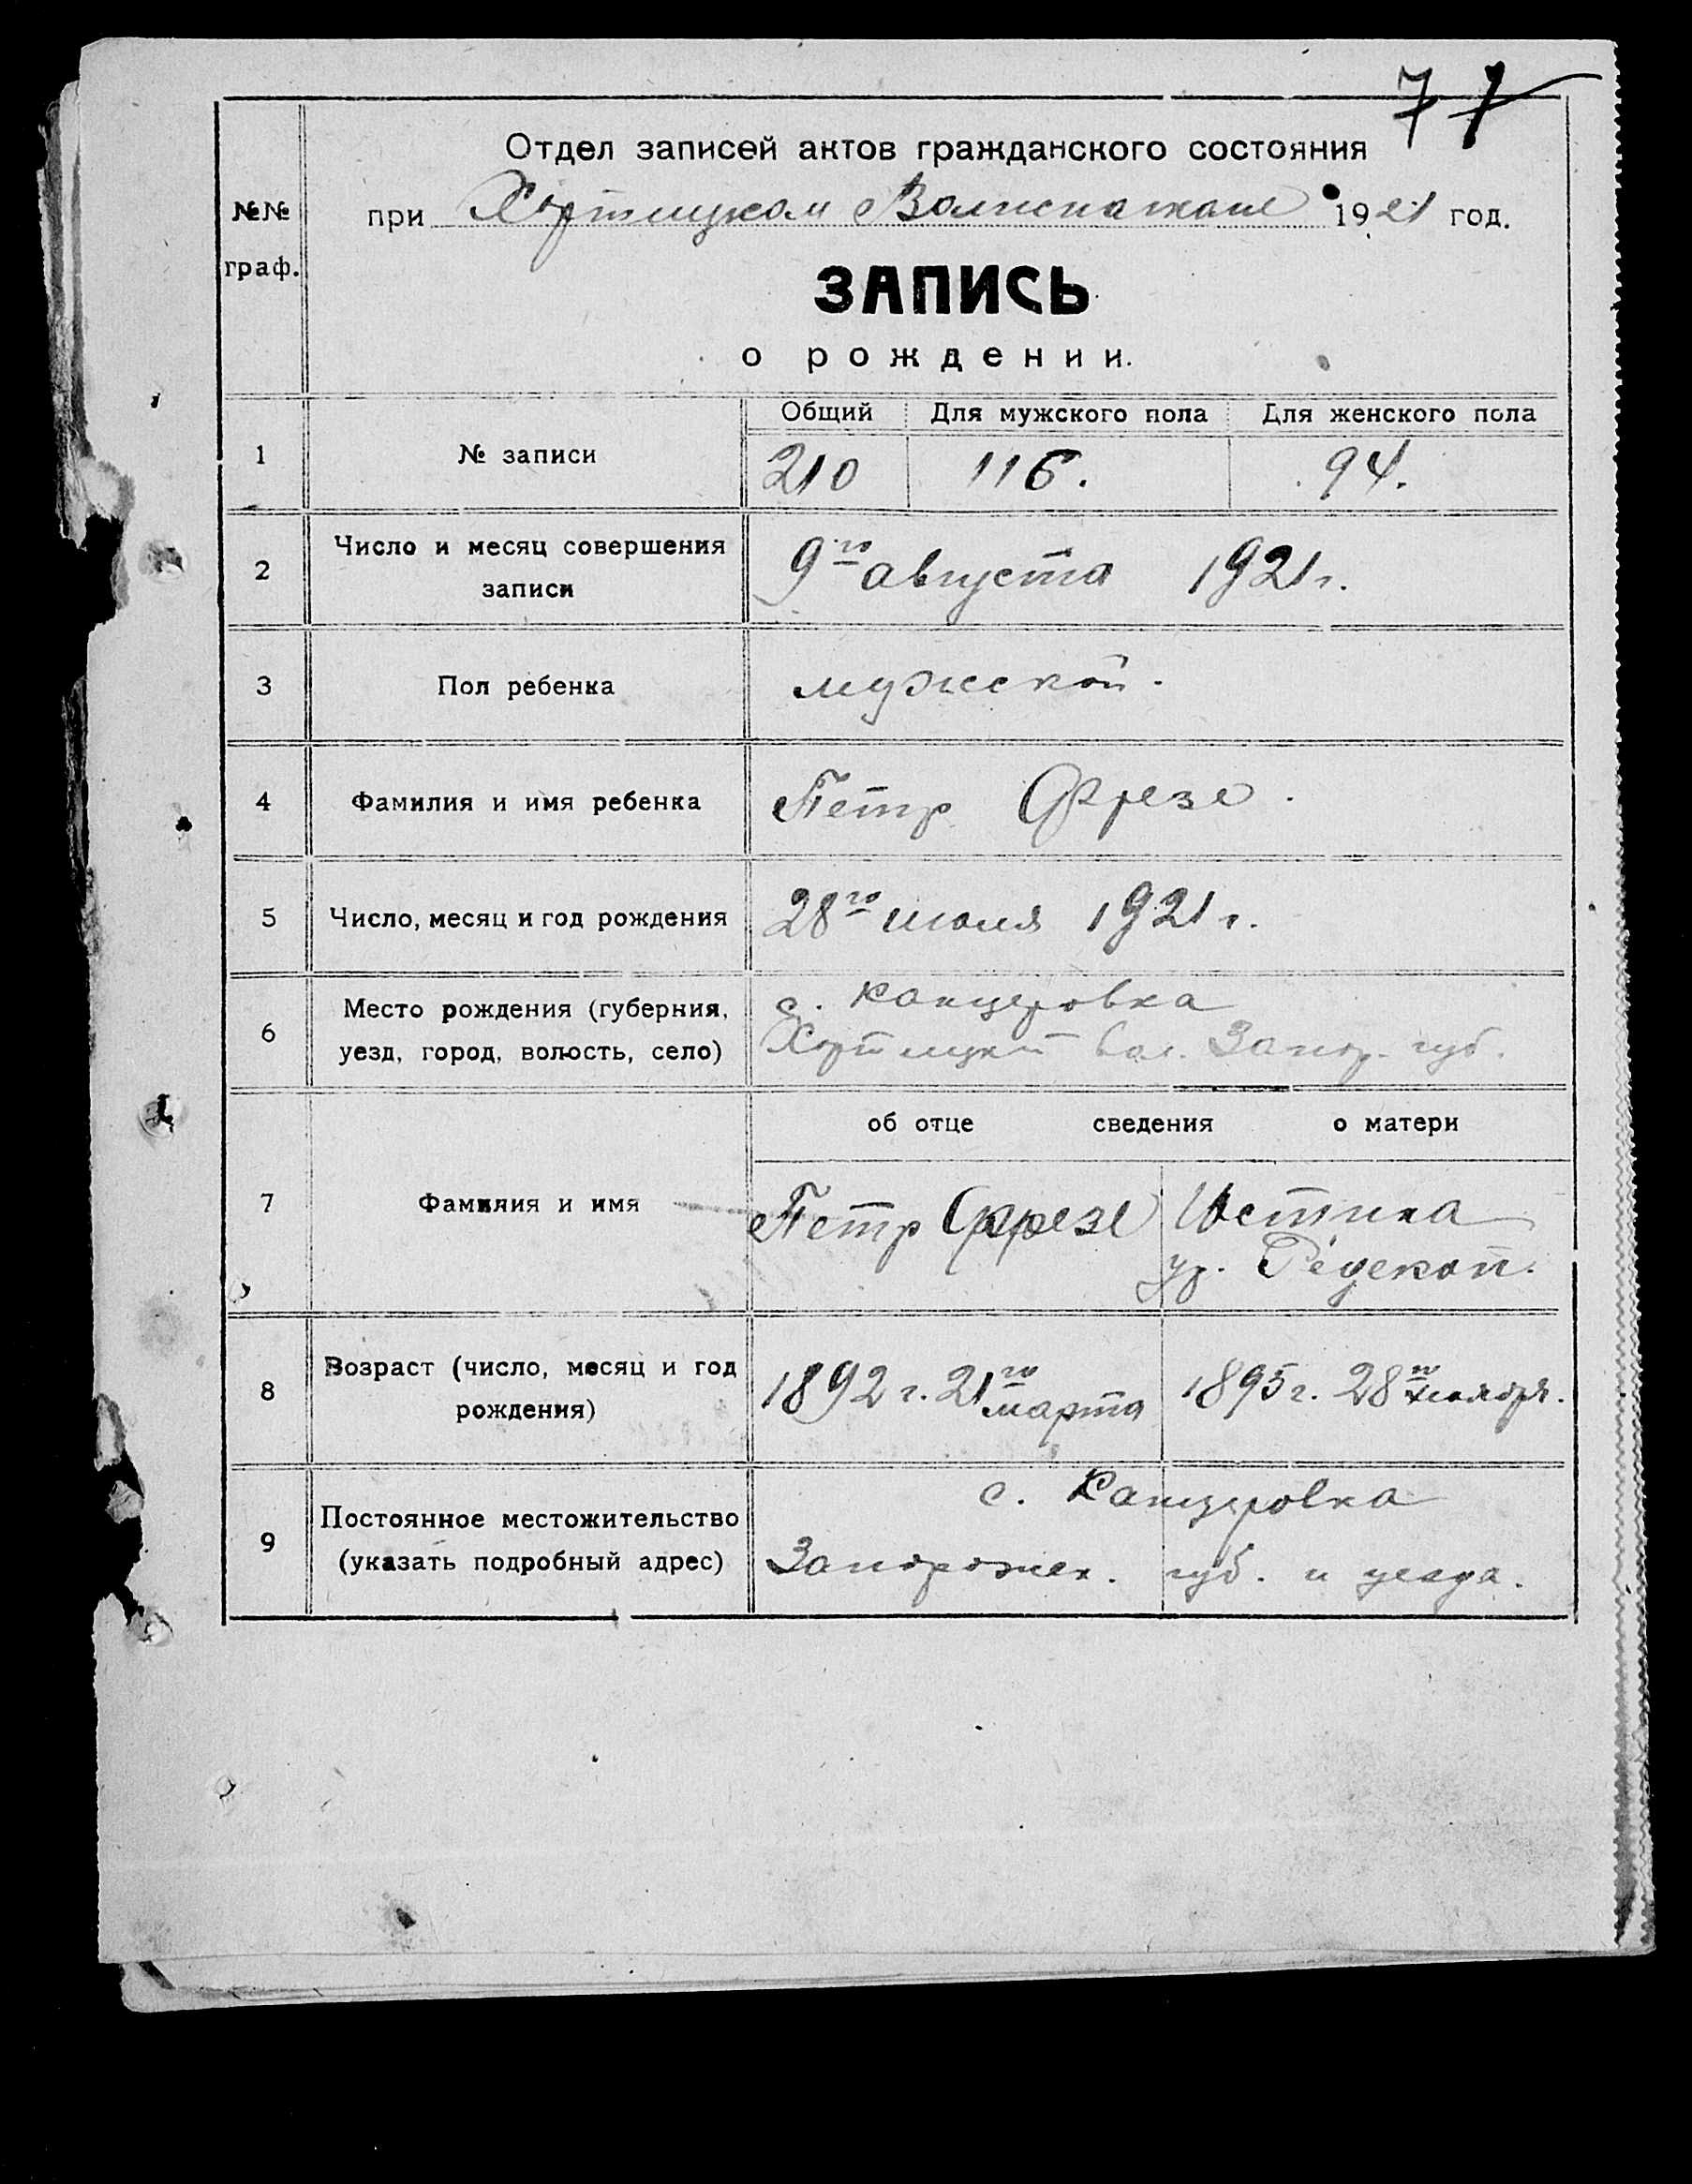 77
Отдел записей актов гражданского состояния
при Хортицком Волисполкоме 1921 год.
№№ граф.
ЗАПИСЬ
о рождении.
Общий Для мужского пола Для женского пола
1 № записи 210 116. 94.
2 Число и месяц совершения записи 9го августа 1921 г.
3 Пол ребенка мужской.
4 Фамилия и имя ребенка Петр Фрезе.
5 Число, месяц и год рождения 28го июля 1921 г.
6 Место рождения (губерния, уезд, город, волость, село) с. Канцеровка
Хортицкой вол. Запор. губ.
об отце сведения о матери
7 Фамилия и имя Петр Фрезе Истина
ур. Редекоп.
8 Возраст (число, месяц и год рождения) 1892 г. 21го марта 1895 г. 28го
9 Постоянное местожительство (указать подробный адрес) с. Канцеровка
Запорожск. губ. и уезда.